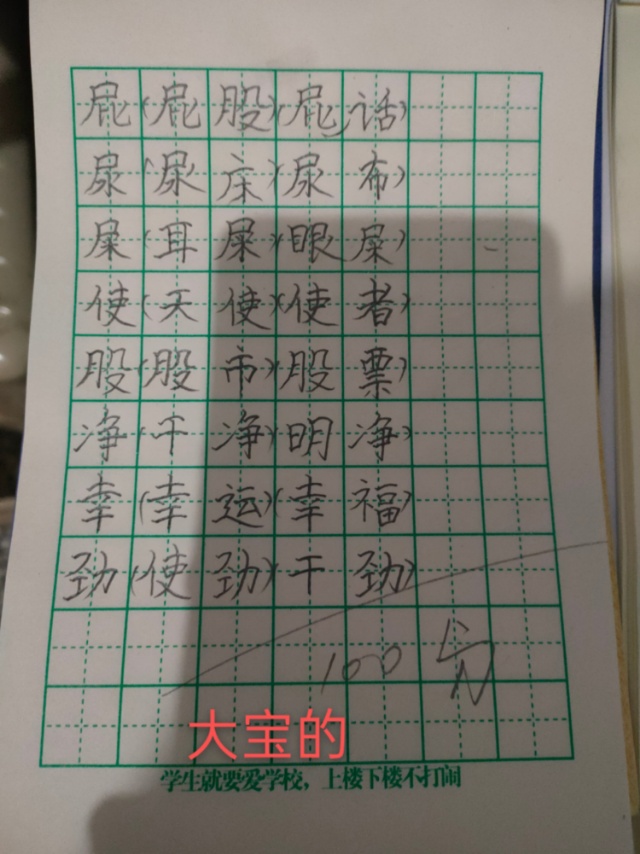 屁(屁股)(屁话)
尿(尿床)尿布)
屎(耳屎)(眼屎)
使(天使)(使者)
股(股市)(股票)
净(干净)(明净)
幸(幸运)(幸福)
劲(使劲)(干劲)
100
大宝的
学生就要爱学校，上楼下楼不打闹